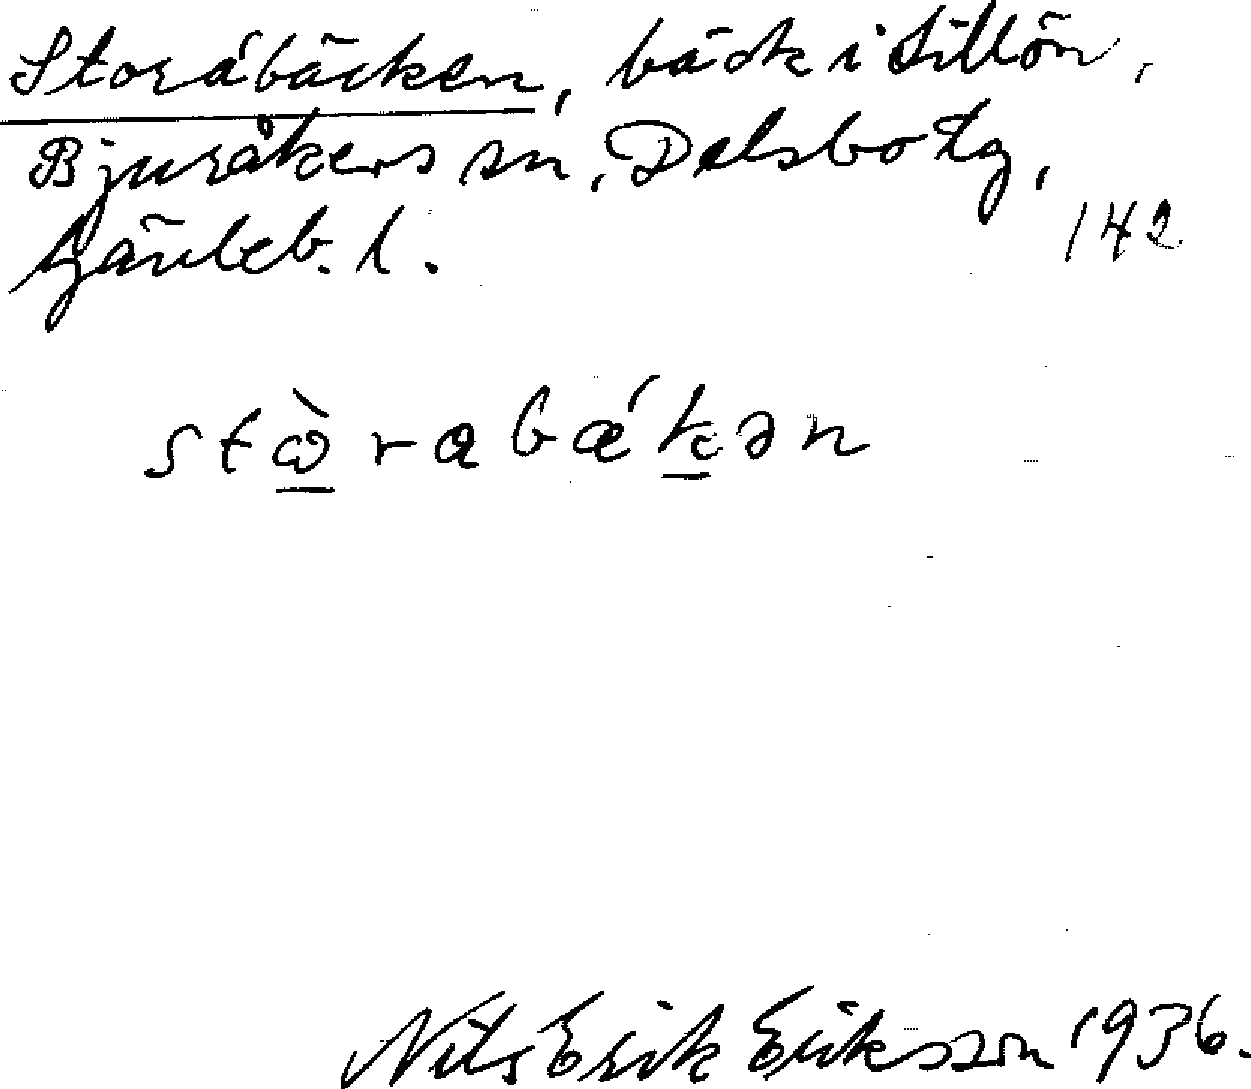 Storåbäcken, bäck i Sillön,
Bjuråkers sn, Delsbo tg,
Gävleb. l.
142
stὼrabǽkən
Nils Erik Eriksson 1936.